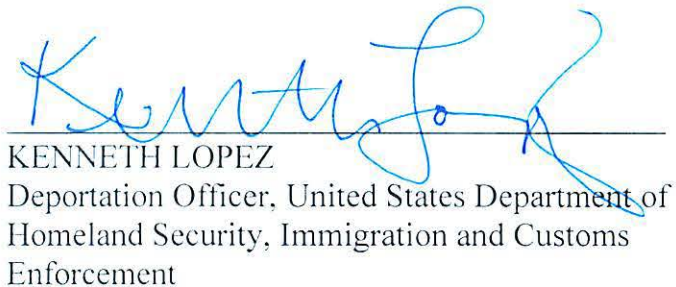 Kenneth Lopez
KENNETH LOPEZ
Deportation Officer, United States Department of
Homeland Security, Immigration and Customs
Enforcement